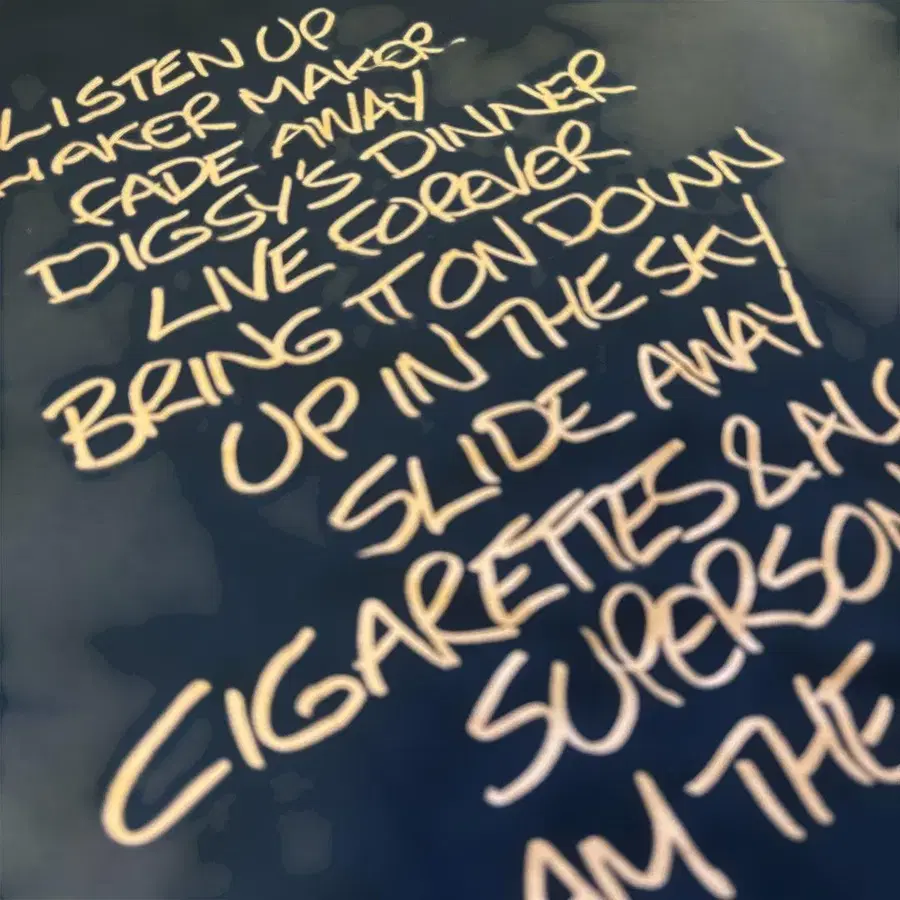 LISTEN UP
MAKER MAKER
FADE AWAY
DIGSY'S DINNER
LIVE FOREVER
BRING IT ON DOWN
UP IN THE SKY
SLIDE AWAY
CIGARETTES & ALC
SUPERSON
AM THE